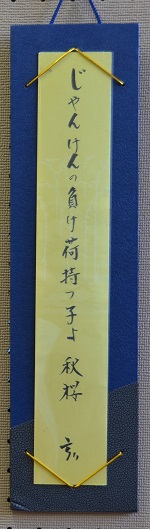 じゃんけんの負け荷持つ子よ 秋桜